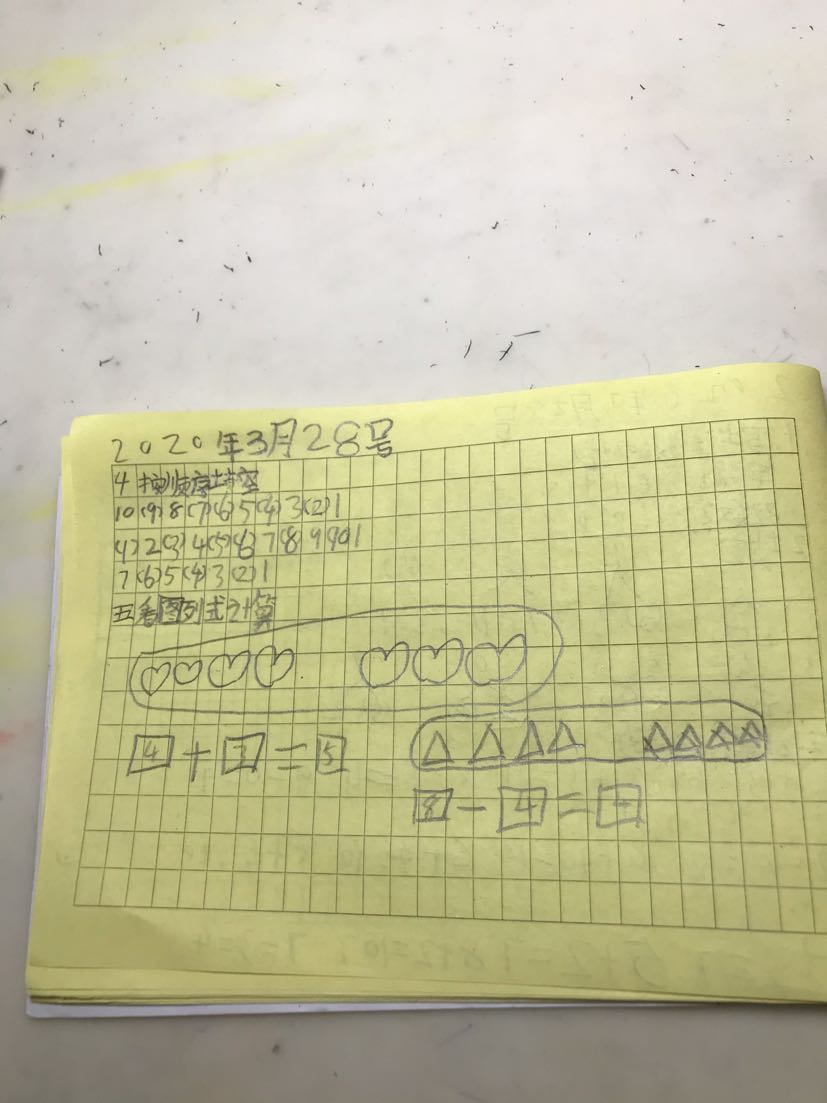 2020年3月28号
4 按顺序填空
10(9)8(7)(6)5(4)3(2)1
(1)2(3)4(5)(6)7(8 9(10)
7(6)5(4)3(2)1
五看图列式计算
4+3=5
8-4=4